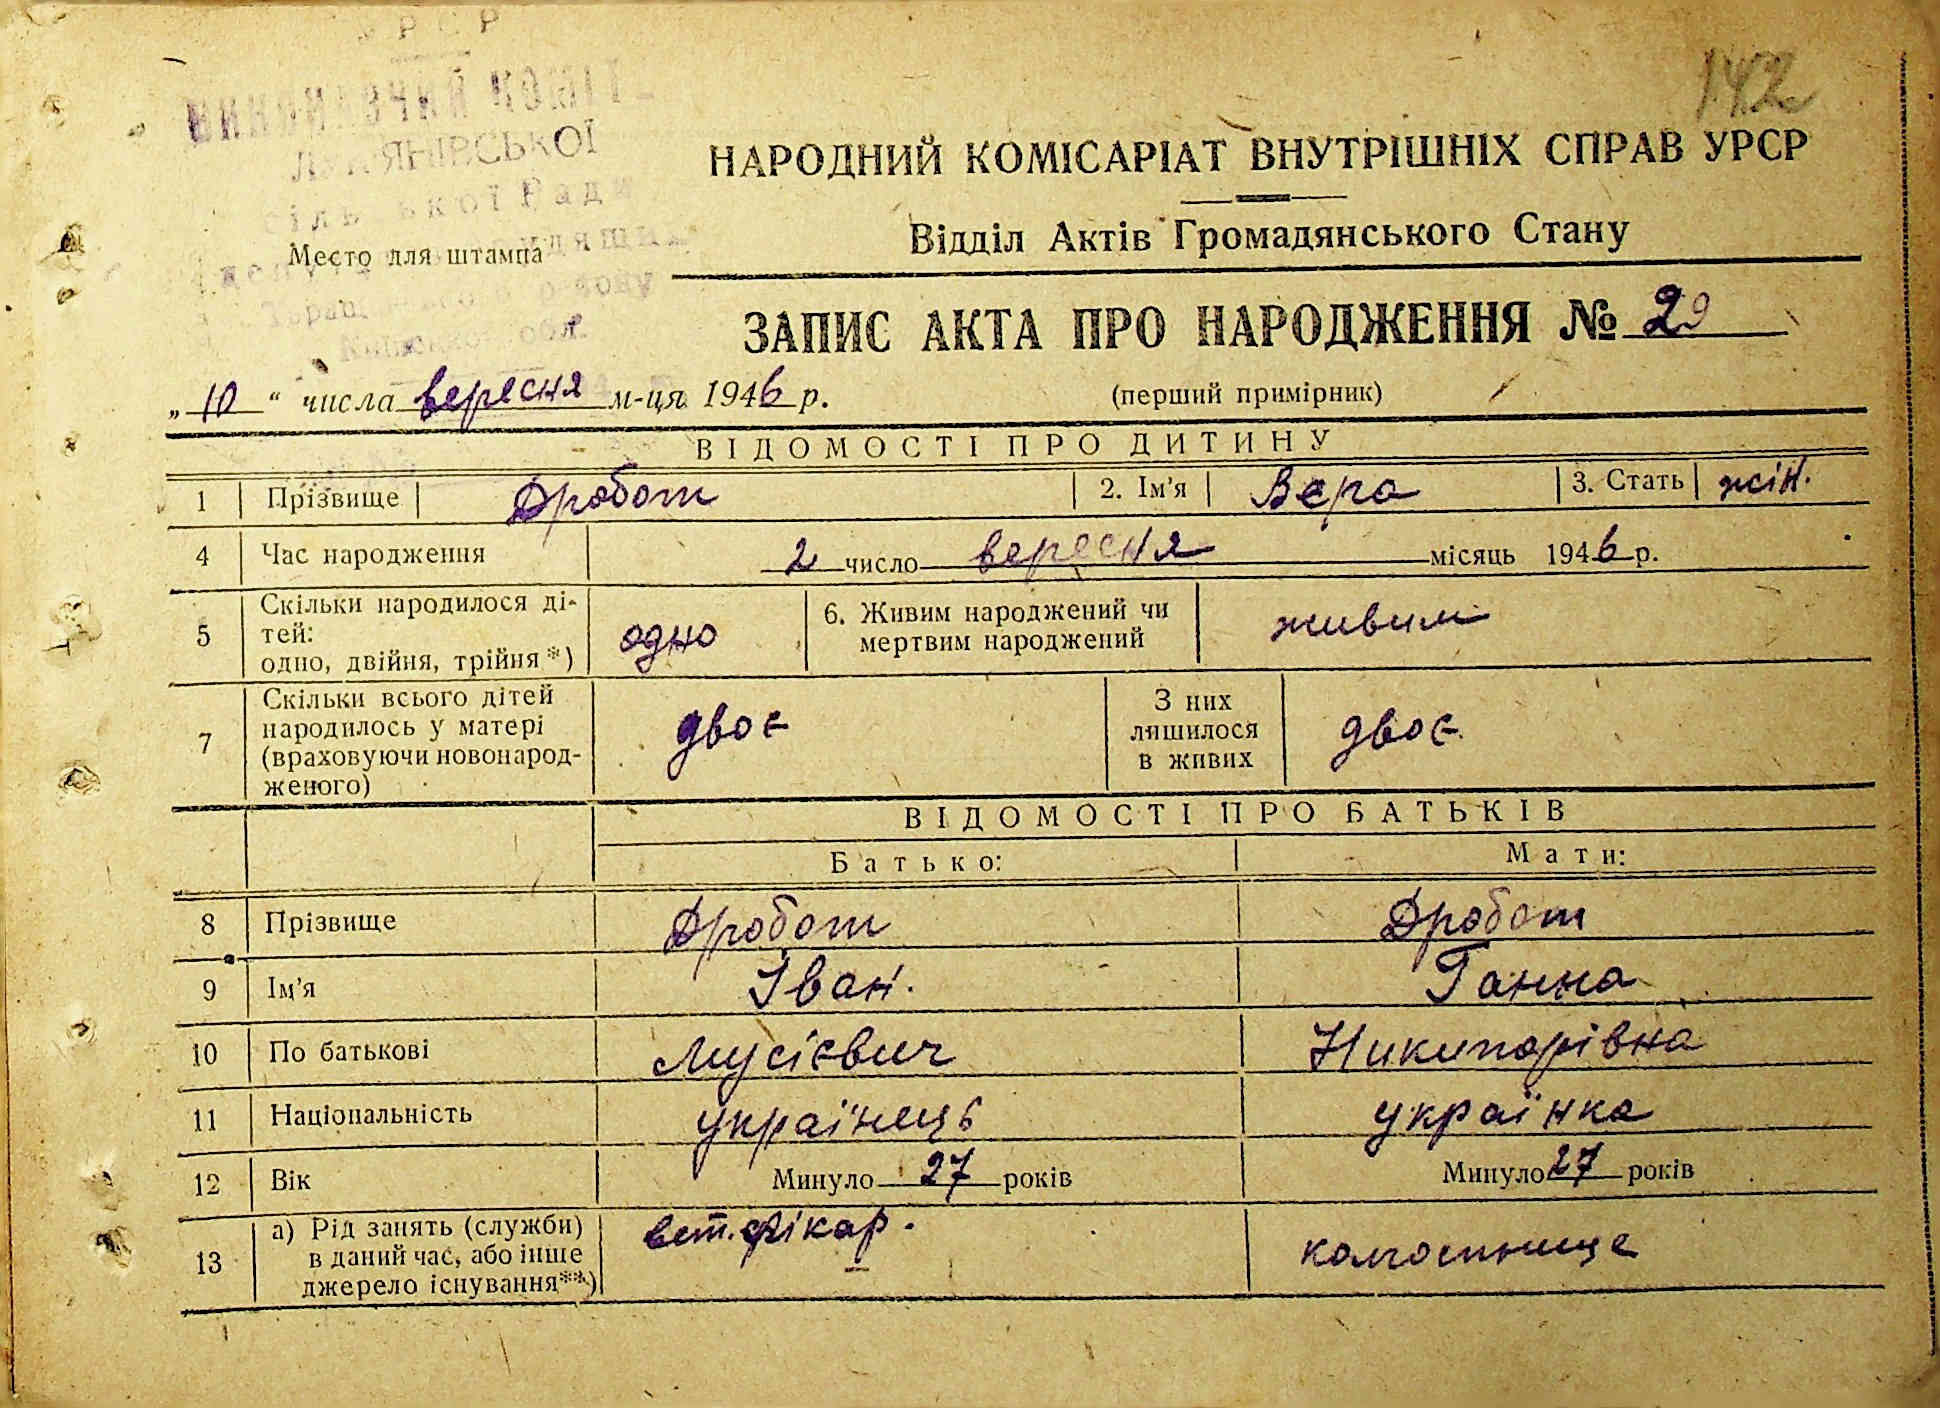 УРСР
ВИКОНАВЧИЙ КОМІТЕТ
ЛУК'ЯНІВСЬКОЇ
сільської Ради
депутатів трудящих
Таращанського району
Київської обл.
Место для штампа
142
НАРОДНИЙ КОМІСАРІАТ ВНУТРІШНІХ СПРАВ УРСР
Відділ Актів Громадянського Стану
ЗАПИС АКТА ПРО НАРОДЖЕННЯ № 29
„10“ числа вересня м-ця 1946 р. (перший примірник)
ВІДОМОСТІ ПРО ДИТИНУ
1 Прізвище Дробот 2. Ім'я Вєра 3. Стать жін.
4 Час народження 2 число вересня місяць 1946 р.
5 Скільки народилося ді-
тей:
одно, двійня, трійня*) одно 6. Живим народжений чи
мертвим народжений живим
7 Скільки всього дітей
народилось у матері
(враховуючи новонарод-
женого) двоє З них
лишилося
в живих двоє
ВІДОМОСТІ ПРО БАТЬКІВ
Батько: Мати:
8 Прізвище Дробот Дробот
9 Ім'я Іван. Ганна
10 По батькові Мусієвич Никипорівна
11 Національність українець українка
12 Вік Минуло 27 років Минуло 27 років
13 а) Рід занять (служби)
в даний час, або інше
джерело існування**) вет. фікар. колгоспнице